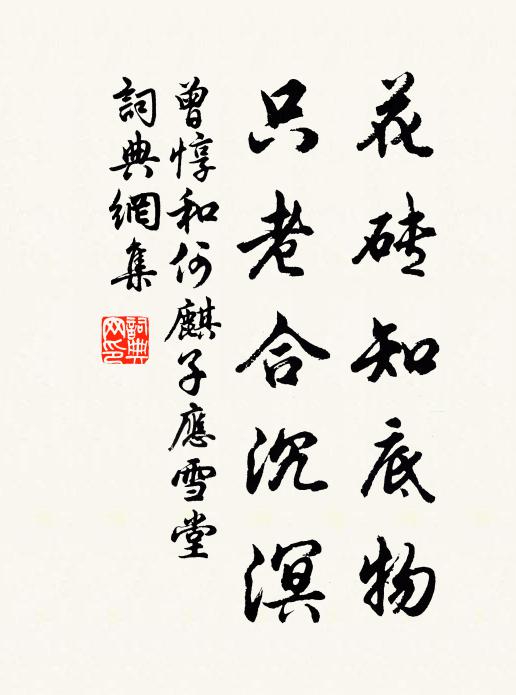 花砖知底物
只老合沉溟
曾惇和何麒子應雪堂
詞典網集
詞典网印